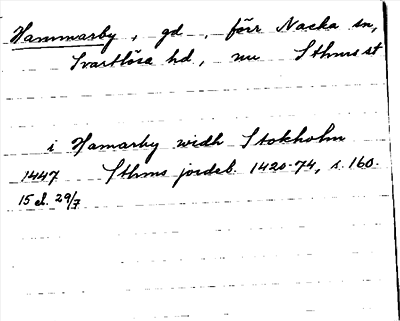 Hammarby, gd, förr Nacka sn,
Svartlösa hd, nu Sthms st
i Hamarby widh Stokholm
1447 Sthms jordeb. 1420-74, s. 160.
15 el. 29/7